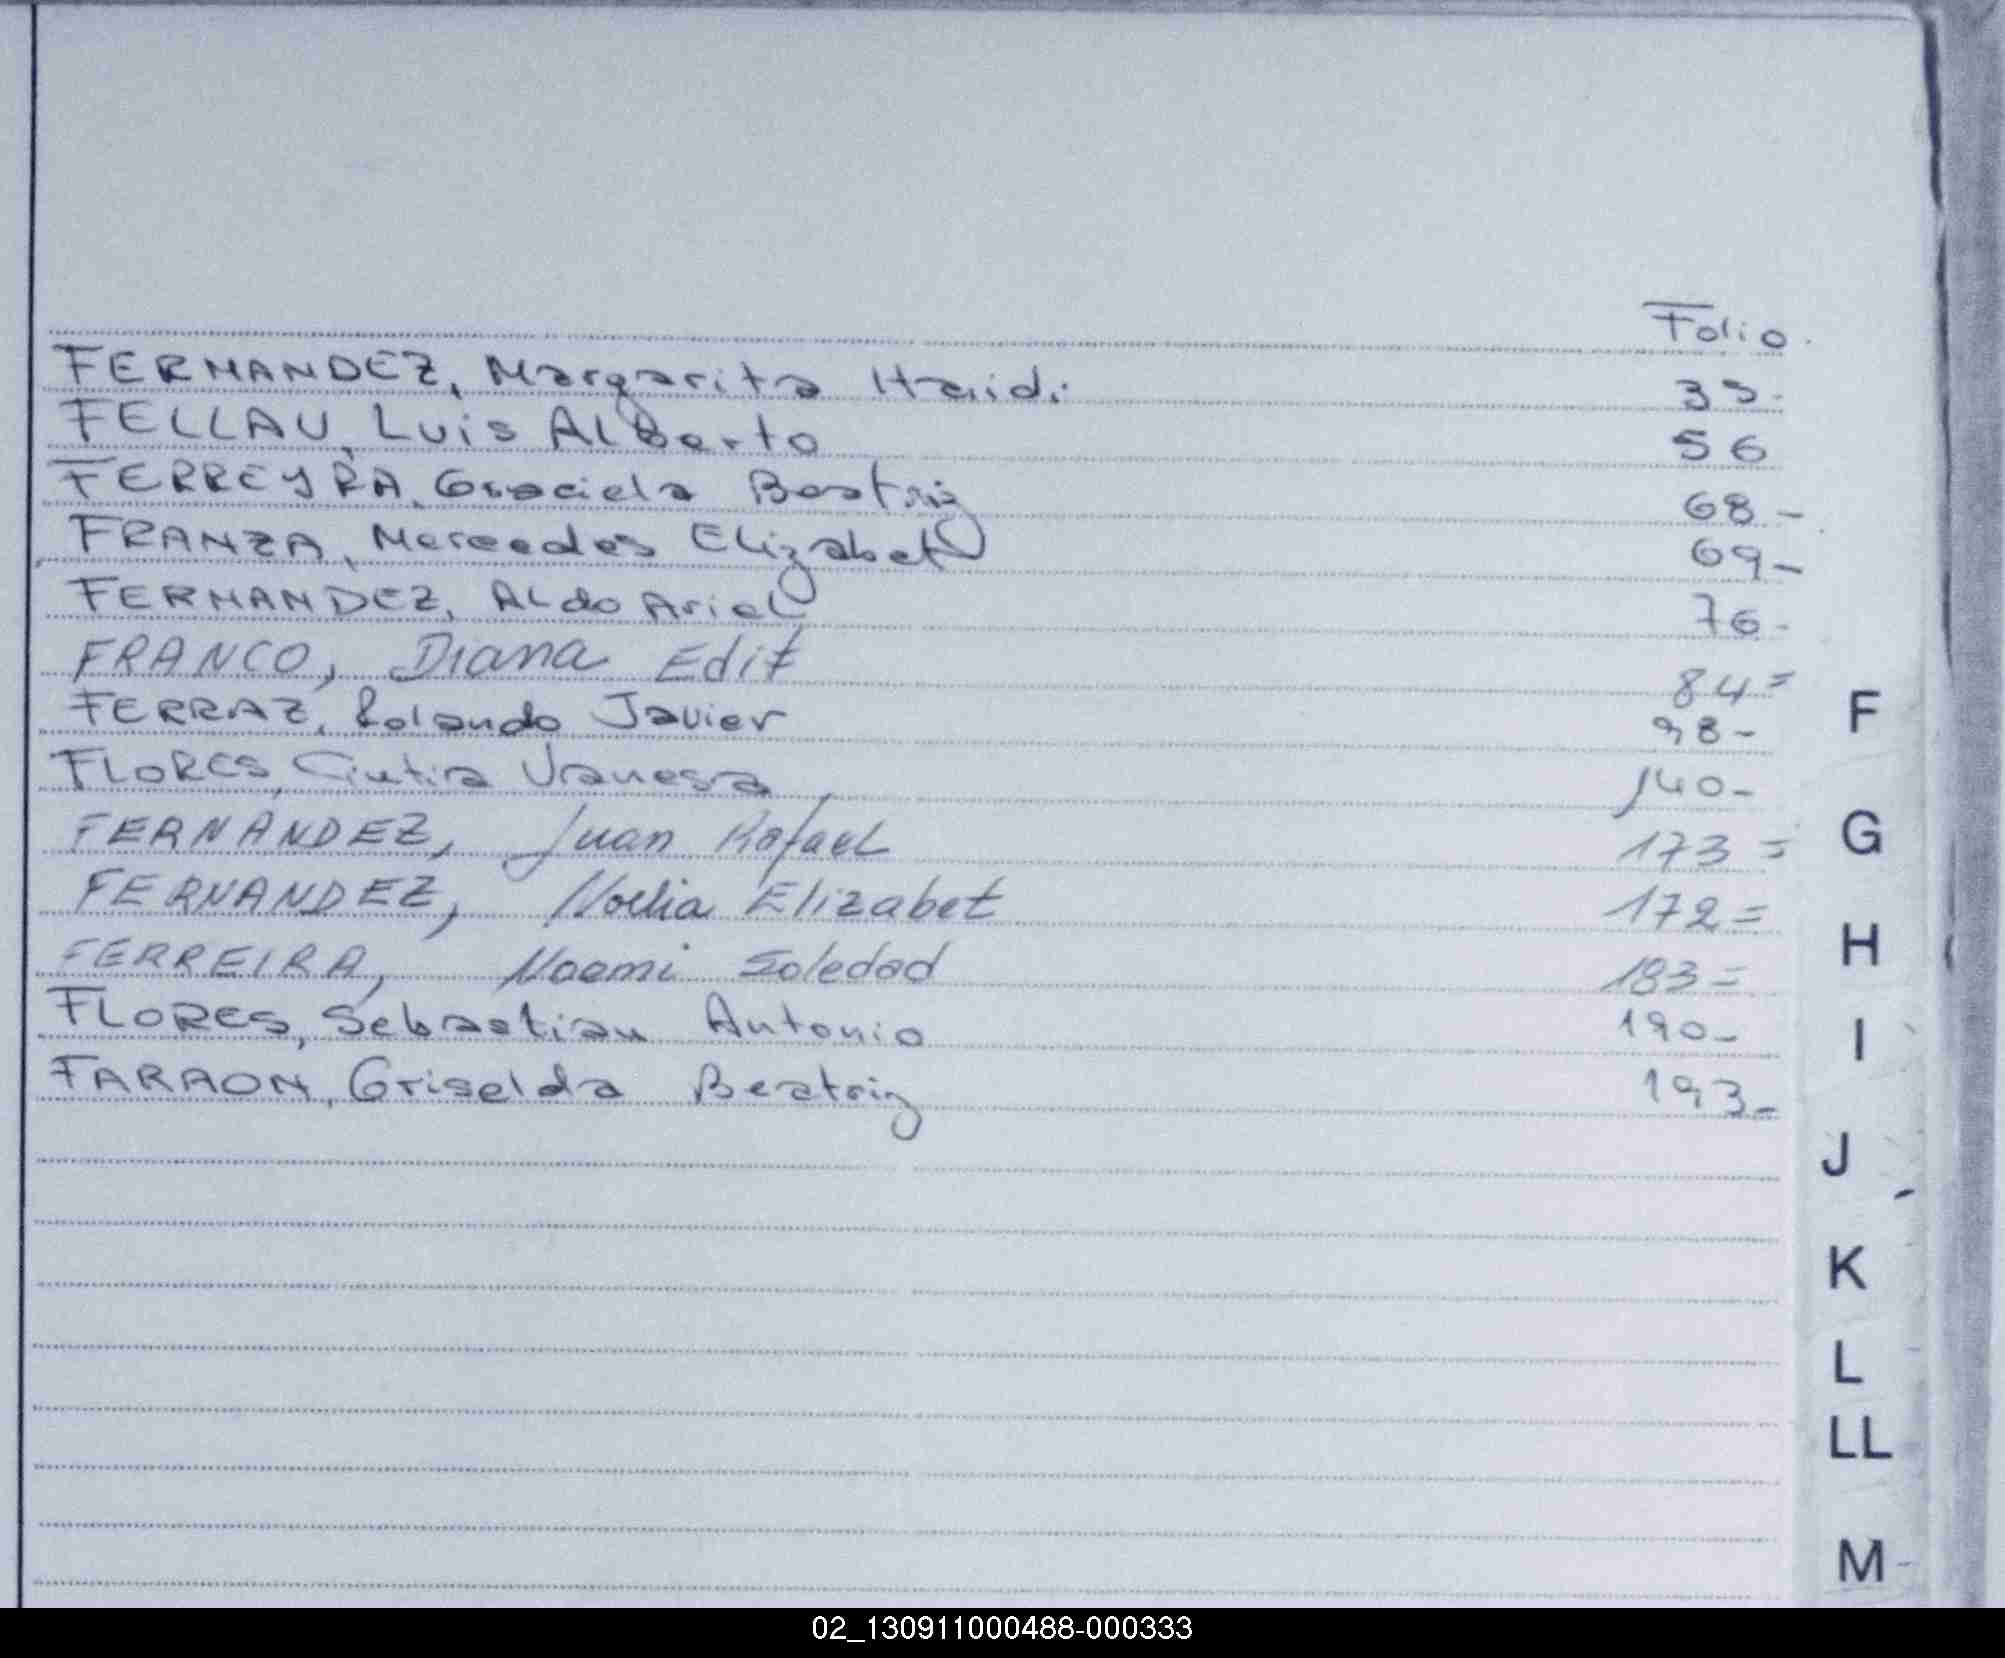 Folio
FERNANDEZ, Margarita Haidi 35-
FELLAU, Luis Alberto 56
FERREYRA, Graciela Beatriz 68-
FRANZA, Mercedes Elizabet 69-
FERNANDEZ, Aldo Ariel 76-
FRANCO, Diana Edit 84=
FERRAZ, Rolando Javier 98-
FLORES, Cintia Vanesa 140-
FERNANDEZ, Juan Rafael 173=
FERNANDEZ, Noelia Elizabet 172=
FERREIRA, Noemi Soledad 183=
FLORES, Sebastian Antonio 190-
FARAON, Griselda Beatriz 193-
F
G
H
I
J
K
L
LL
M
02_130911000488-000333